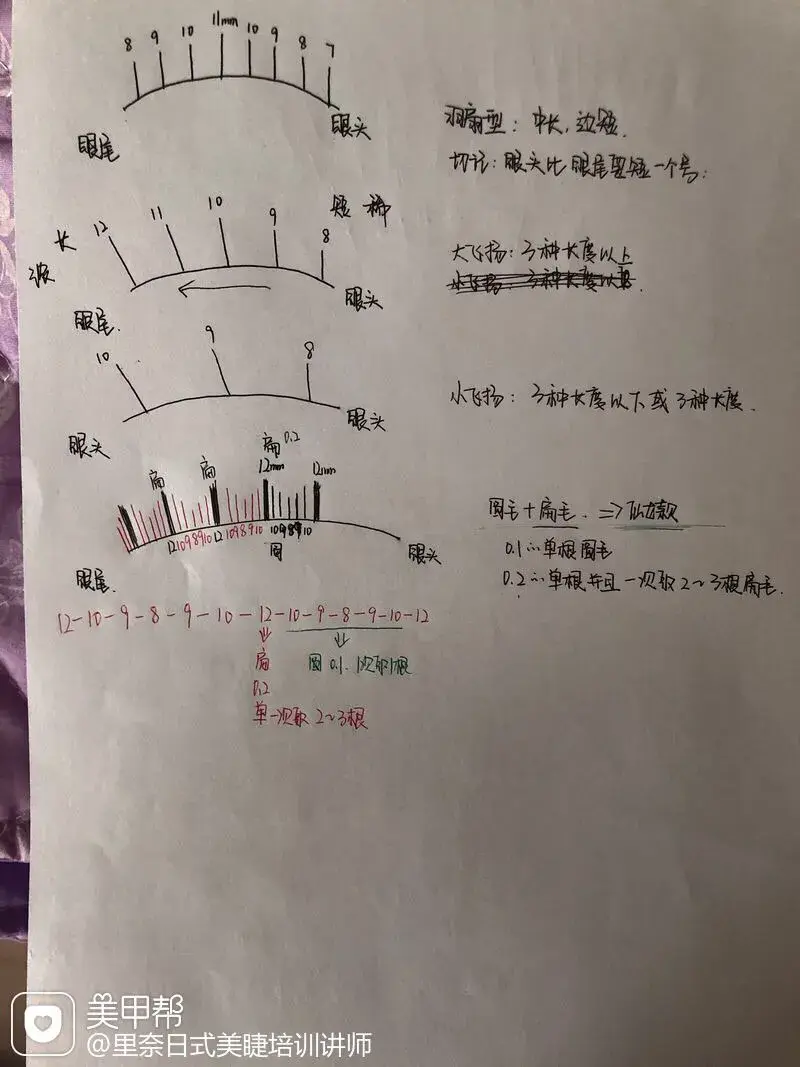 8 9 10 11mm 10 9 8 7
眼尾 眼头
羽扇型：中长，边短.
切记：眼头比眼尾要短一个号：
长 12 11 10 9 8 短 稀
浓
眼尾. 眼头
大飞扬：3种长度以上
小飞扬：3种长度以
10 9 8
眼头 眼头
小飞扬：3种长度以下或3种长度.
扁 扁 扁0.2
12mm 12mm
121098910 12 1098910 1098910
圆
眼尾. 眼头
圆毛+扁毛. => 仙女款
0.1∽单根圆毛
0.2∽单根并且一次取2~3根扁毛.
12-10-9-8-9-10-12-10-9-8-9-10-12
扁 圆 0.1. 1次取1根
0.2
单一次取2~3根
美甲帮
@里奈日式美睫培训讲师